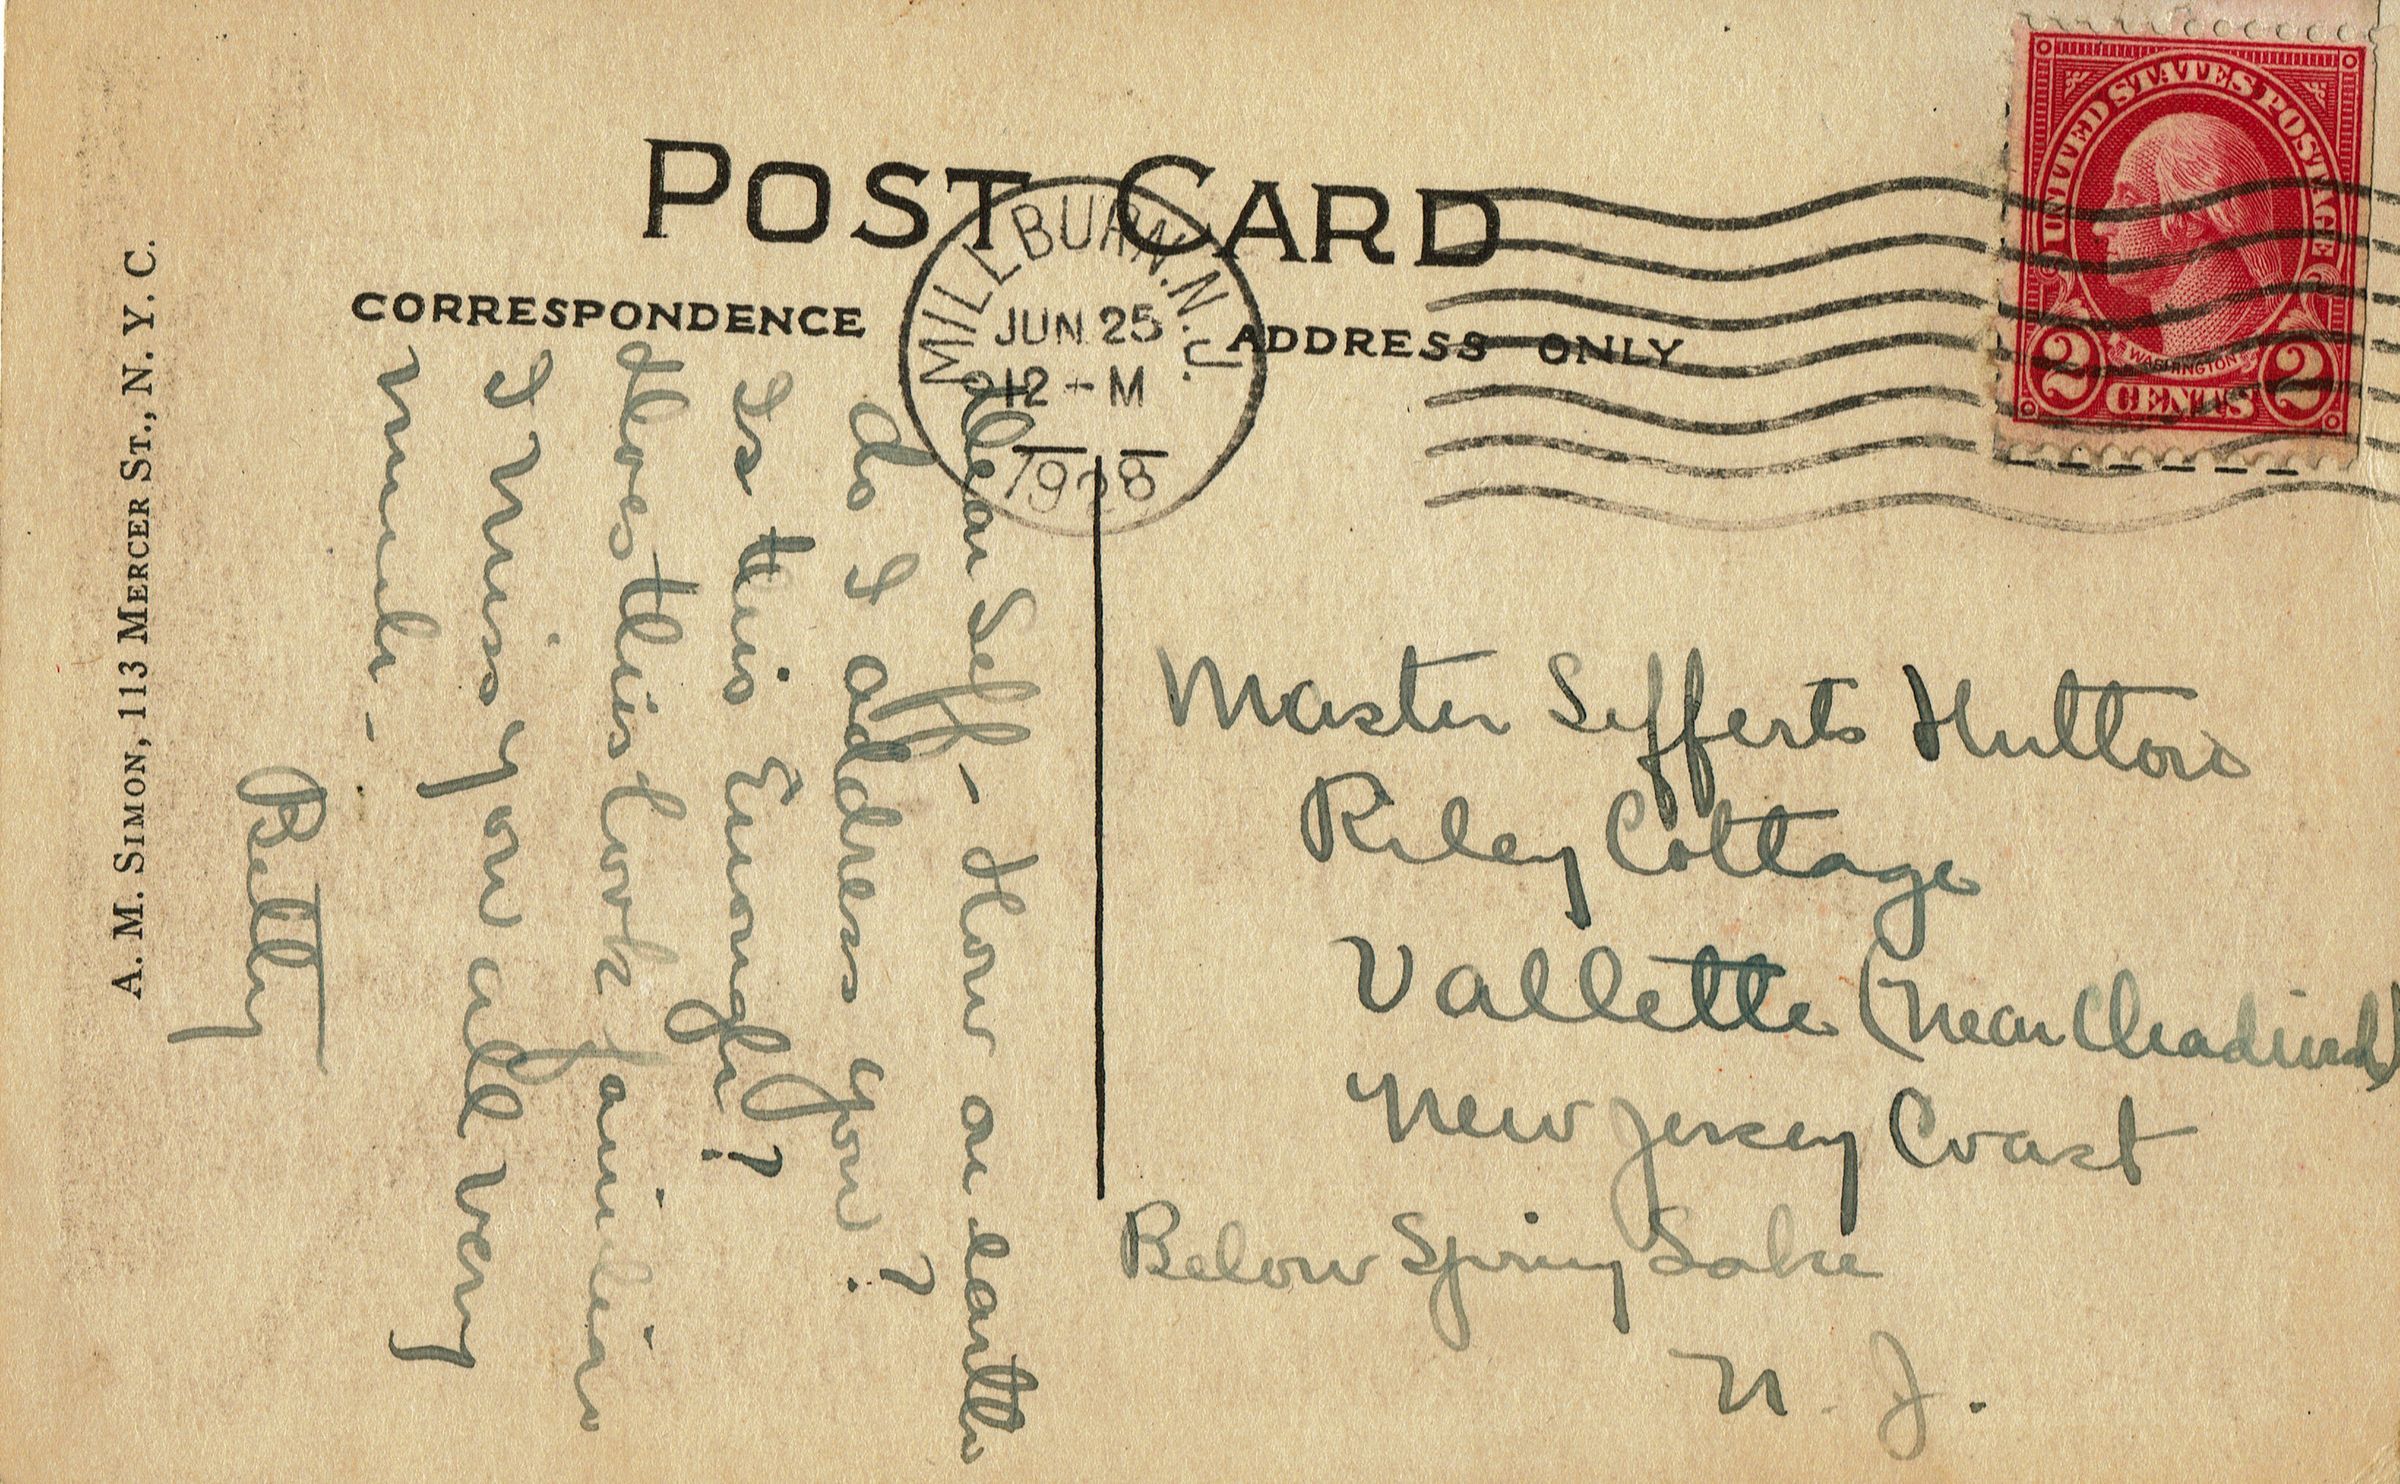 POST CARD
CORRESPONDENCE
ADDRESS ONLY
A. M. SIMON, 113 MERCER ST., N. Y. C.
MILLBURN. N. J.
JUN 25
12 - M
1928
UNITED STATES POSTAGE
WASHINGTON
2 CENTS 2
Dear Seff - How on earth
do I address you?
Is this Enough?
Does this look familiar
I miss you all very
much -
Betty
Master Sefferts Hutton
Riley Cottage
Vallette (Near Chadwick)
New Jersey Coast
Below Spring Lake
N. J.